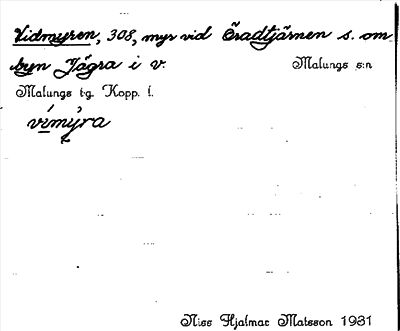 Vidmyren, 308, myr vid Öradtjärnen s. om
byn Jägra i v. Malungs s:n
Malungs tg. Kopp. l.
vímýra
Niss Hjalmar Matsson 1931